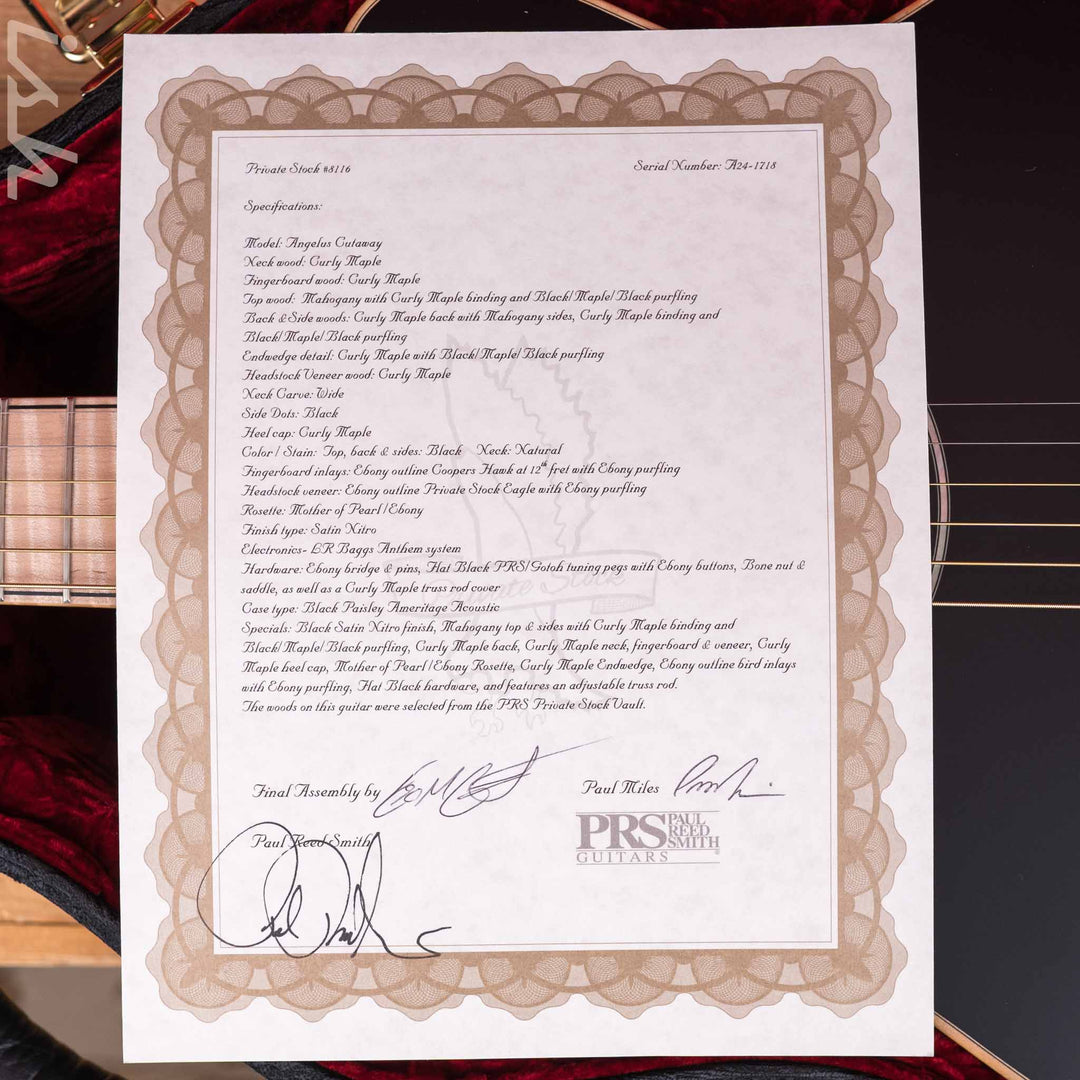 Private Stock #8116
Serial Number: A24-1718
Specifications:
Model: Angelus Cutaway
Neck wood: Curly Maple
Fingerboard wood: Curly Maple
Top wood: Mahogany with Curly Maple binding and Black/Maple/Black purfling
Back & Side woods: Curly Maple back with Mahogany sides, Curly Maple binding and
Black/Maple/Black purfling
Endwedge detail: Curly Maple with Black/Maple/Black purfling
Headstock Veneer wood: Curly Maple
Neck Carve: Wide
Side Dots: Black
Heel cap: Curly Maple
Color / Stain: Top, back & sides: Black Neck: Natural
Fingerboard inlays: Ebony outline Coopers Hawk at 12th fret with Ebony purfling
Headstock veneer: Ebony outline Private Stock Eagle with Ebony purfling
Rosette: Mother of Pearl/Ebony
Finish type: Satin Nitro
Electronics- LR Baggs Anthem system
Hardware: Ebony bridge & pins, Flat Black PRS/Gotoh tuning pegs with Ebony buttons, Bone nut &
saddle, as well as a Curly Maple truss rod cover
Case type: Black Paisley Ameritage Acoustic
Specials: Black Satin Nitro finish, Mahogany top & sides with Curly Maple binding and
Black/Maple/Black purfling, Curly Maple back, Curly Maple neck, fingerboard & veneer, Curly
Maple heel cap, Mother of Pearl/Ebony Rosette, Curly Maple Endwedge, Ebony outline bird inlays
with Ebony purfling, Flat Black hardware, and features an adjustable truss rod.
The woods on this guitar were selected from the PRS Private Stock Vault.
Private Stock
Final Assembly by
Paul Miles
Paul Reed Smith
PRS PAUL REED SMITH
GUITARS